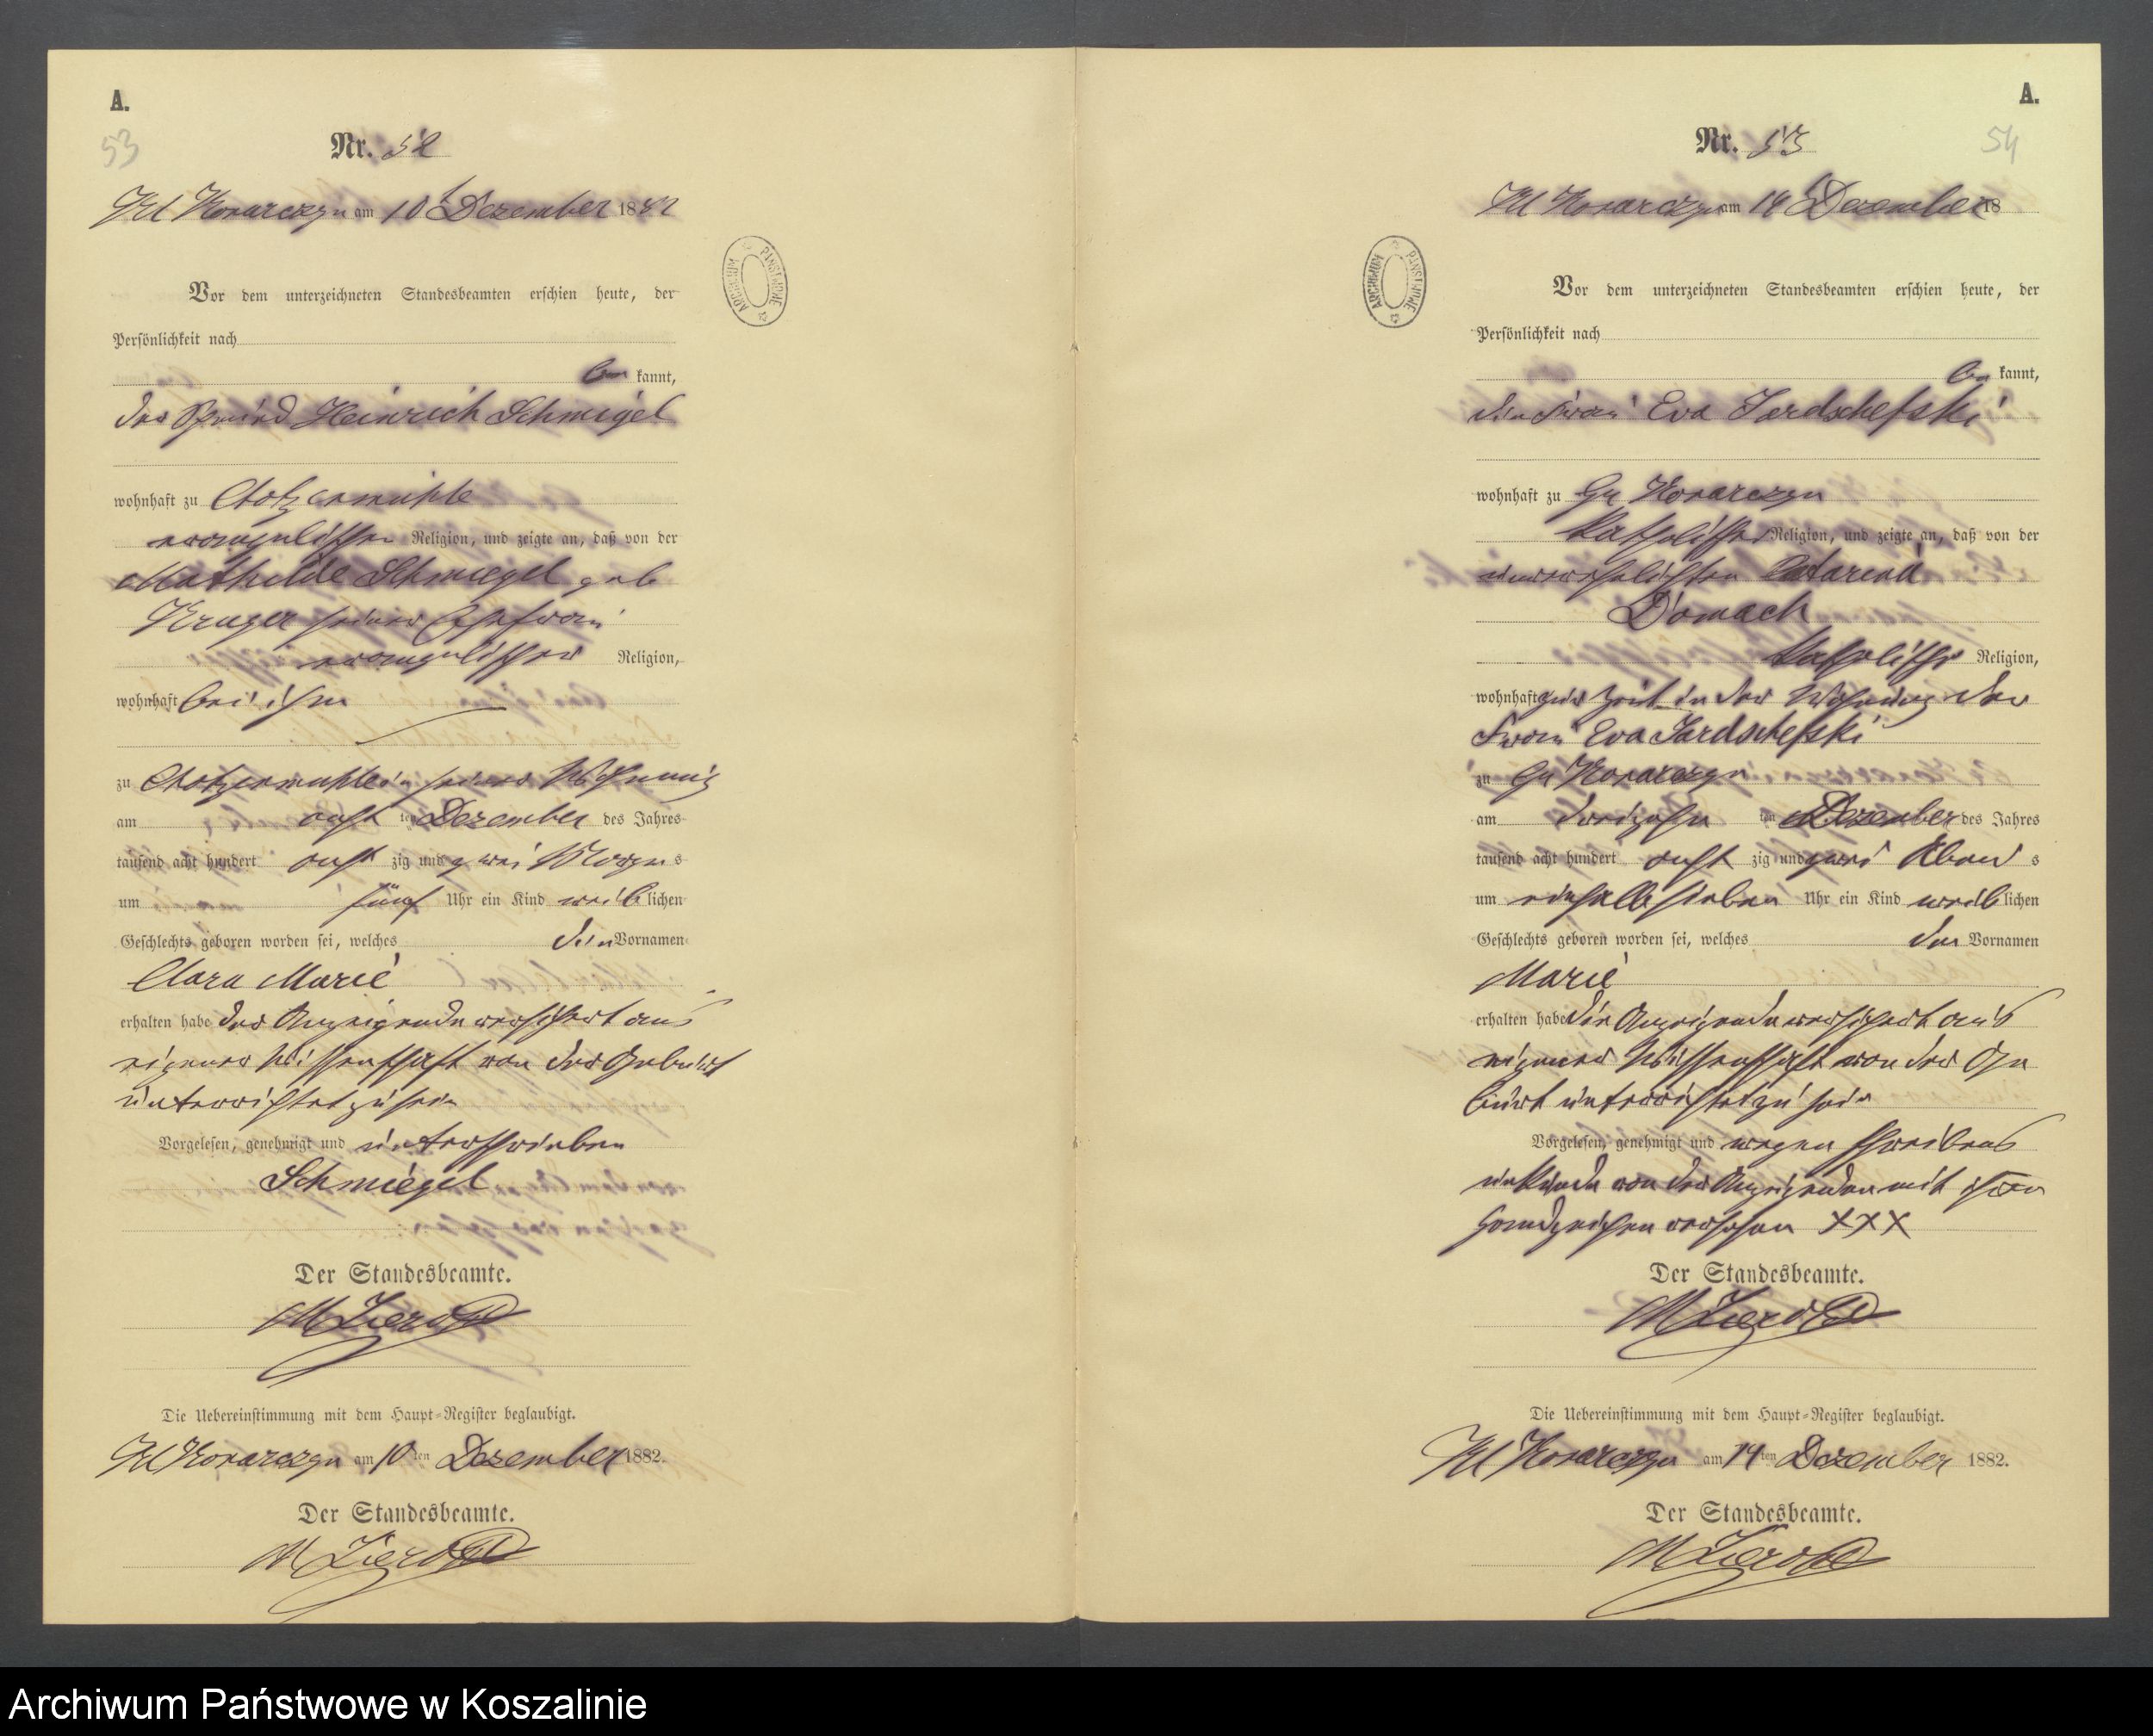 A.
53
Nr. 52
Kl Konarczyn am 10 Dezember 1882
ARCHIWUM PAŃSTWOWE
Vor dem unterzeichneten Standesbeamten erschien heute, der
Persönlichkeit nach
be kannt,
der Heinrich Schmigel
wohnhaft zu
evangelischer Religion, und zeigte an, daß von der
Mathilde Schmiegel geb
Kruger seiner Ehefrau
evangelischer Religion,
wohnhaft bei ihm
zu in seiner Wohnung
am acht ten Dezember des Jahres
tausend acht hundert acht zig und zwei Morgens
um fünf Uhr ein Kind weiblichen
Geschlechts geboren worden sei, welches den Vornamen
Clara Marie
erhalten habe der Anzeigende versichert aus
eigener Wissenschaft von der Geburt
unterrichtet zu sein
Vorgelesen, genehmigt und unterschrieben
Schmiegel
Der Standesbeamte.
Die Uebereinstimmung mit dem Haupt-Register beglaubigt.
Kl Konarczyn am 10ten Dezember 1882.
Der Standesbeamte.
A.
54
Nr. 53
Kl Konarczyn am 14 Dezember 18
ARCHIWUM PAŃSTWOWE
Vor dem unterzeichneten Standesbeamten erschien heute, der
Persönlichkeit nach
be kannt,
die Frau Eva Jardschefski
wohnhaft zu Gr Konarczyn
katholischer Religion, und zeigte an, daß von der
unverehelichten
Domach
katholischer Religion,
wohnhaft zur Zeit in der Wohnung der
Frau Eva Jardschefski
zu Gr Konarczyn
am dreizehn ten Dezember des Jahres
tausend acht hundert acht zig und zwei Abends
um einhalb sieben Uhr ein Kind weiblichen
Geschlechts geboren worden sei, welches den Vornamen
Marie
erhalten habe die Anzeigende versichert aus
eigener Wissenschaft von der Ge
burt unterrichtet zu sein
Vorgelesen, genehmigt und wegen Schreibens
unkunde von der Anzeigenden mit ihren
Handzeichen versehen XXX
Der Standesbeamte.
Die Uebereinstimmung mit dem Haupt-Register beglaubigt.
Kl Konarczyn am 14ten Dezember 1882.
Der Standesbeamte.
Archiwum Państwowe w Koszalinie